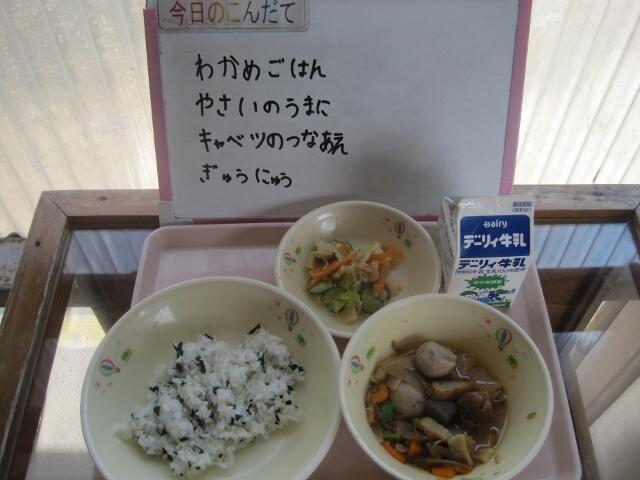 今日のこんだて
わかめごはん
やさいのうまに
キャベツのつなあえ
ぎゅうにゅう
Dairy
デーリィ牛乳
デーリィ牛乳